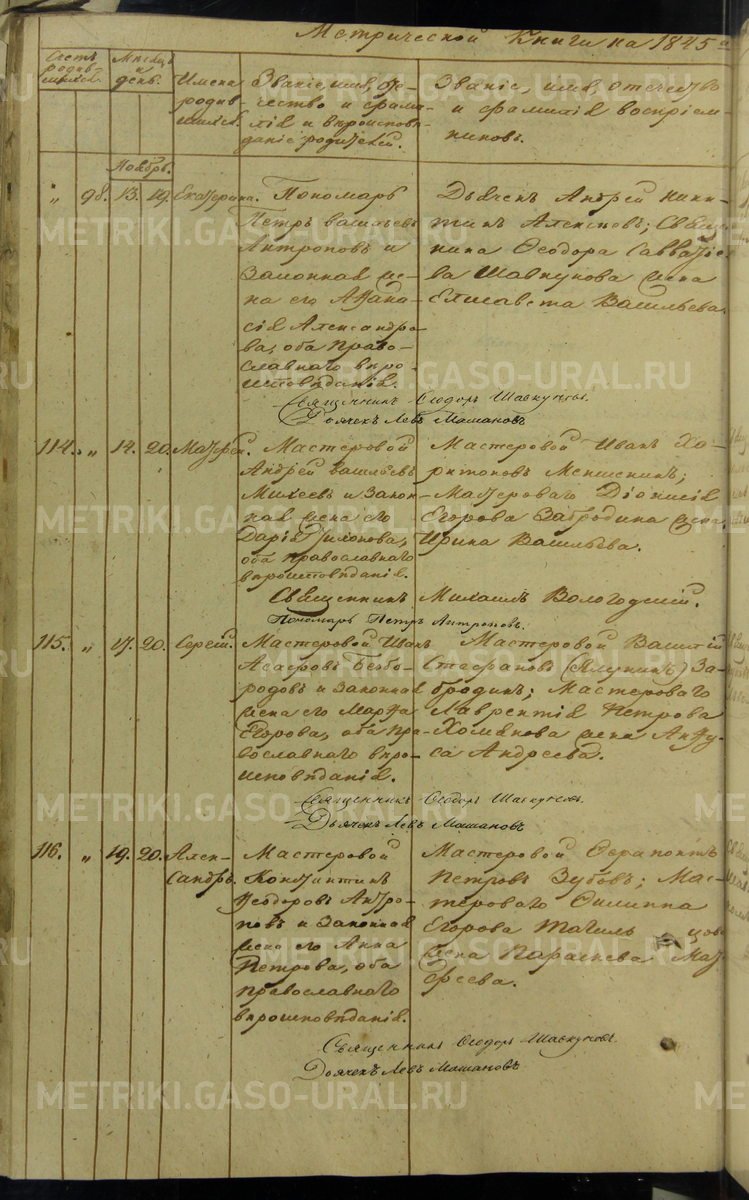 Метрической Книги на 1845
Счетъ родив-шихся.
Мѣсяцъ и день.
Имена родив-шихся.
Званіе, имя, оте-
чество и фами-
лія и вѣроисповѣ-
даніе родителей.
Званіе, имя, отечество
и фамилія воспріем-
никовъ.
Ноябрь.
„ 98. 13. 19. Екатерина.
Пономарь
Петръ Васильевъ
Антроповъ и
законная же-
на его Афана-
сія Александро-
ва, оба право-
славнаго вѣро-
исповѣданія.
Дьячекъ Андрей Ники-
тинъ Алексѣевъ; Священ-
ника Ѳеодора Савватіе-
ва Шавкунова жена
Елисавета Васильева.
Священникъ Ѳеодоръ Шавкуновъ.
Дьячекъ Левъ Машановъ
114. „ 14. 20. Матфей.
Мастеровой
Андрей Васильевъ
Михеевъ и закон-
ная жена его
Дарія Филонова,
оба православнаго
вѣроисповѣданія.
Мастеровой Иванъ Ха-
ритоновъ Меншенинъ;
Мастероваго Діонисія
Егорова Забродина жена
Ирина Васильева.
Священникъ Михаилъ Вологодскій.
Пономарь Петръ Антроповъ.
115. „ 17. 20. Сергей.
Мастеровой Иванъ
Асафовъ Безбо-
родовъ и законная
жена его Марфа
Егорова, оба пра-
вославнаго вѣро-
исповѣданія.
Мастеровой Василій
Стефановъ За-
бродинъ; Мастероваго
Лаврентія Петрова
Хомякова жена Анфу-
са Андреева.
Священникъ Ѳеодоръ Шавкуновъ.
Дьячекъ Левъ Машановъ
116. „ 19. 20. Алек-
сандръ.
Мастеровой
Константинъ
Ѳеодоровъ Антро-
повъ и законная
жена его Анна
Петрова, оба
православнаго
вѣроисповѣданія.
Мастеровой Ферапонтъ
Петровъ Зубовъ; Мас-
тероваго Филиппа
Егорова Тагильцова
жена Параскева Мат-
феева.
Священникъ Ѳеодоръ Шавкуновъ.
Дьячекъ Левъ Машановъ
METRIKI.GASO-URAL.RU
METRIKI.GASO-URAL.RU
METRIKI.GASO-URAL.RU
METRIKI.GASO-URAL.RU
METRIKI.GASO-URAL.RU